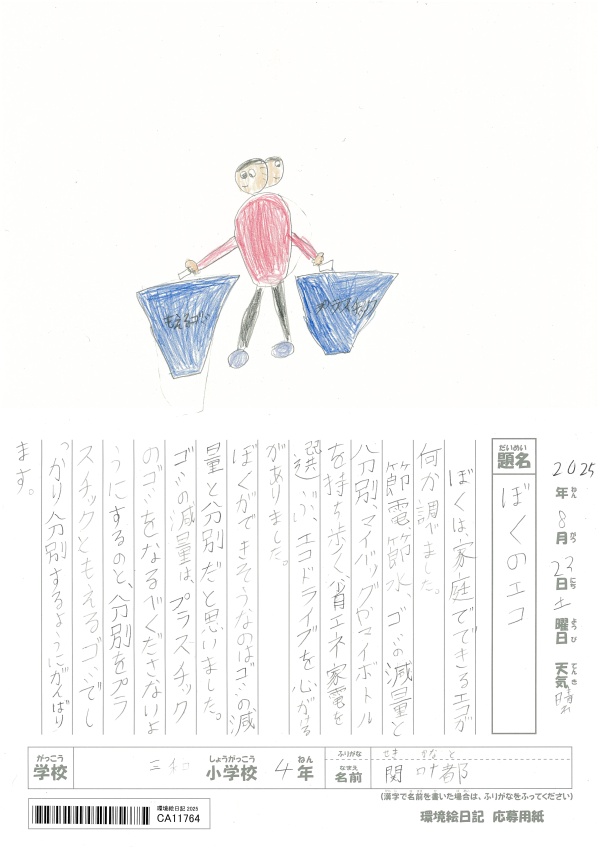 もえるゴミ
プラスチック
2025年8月23日土曜日 天気晴れ
題名 ぼくのエコ
ぼくは家庭でできるエコが
何か調べました。
節電、節水、ゴミの減量と
分別、マイバッグやマイボトル
を持ち歩く、省エネ家電を
選ぶ、エコドライブを心がける
がありました。
ぼくができそうなのはゴミの減
量と分別だと思いました。
ゴミの減量は、プラスチック
のゴミをなるべくださないよ
うにするのと、分別をプラ
スチックともえるゴミでし
っかり分別するようにがんばり
ます。
がっこう 学校 三和 しょうがっこう 小学校 4 ねん 年
ふりがな せき かなと
なまえ 名前 関 叶都
(漢字で名前を書いた場合は、ふりがなをふってください)
環境絵日記 2025
CA11764
環境絵日記 応募用紙